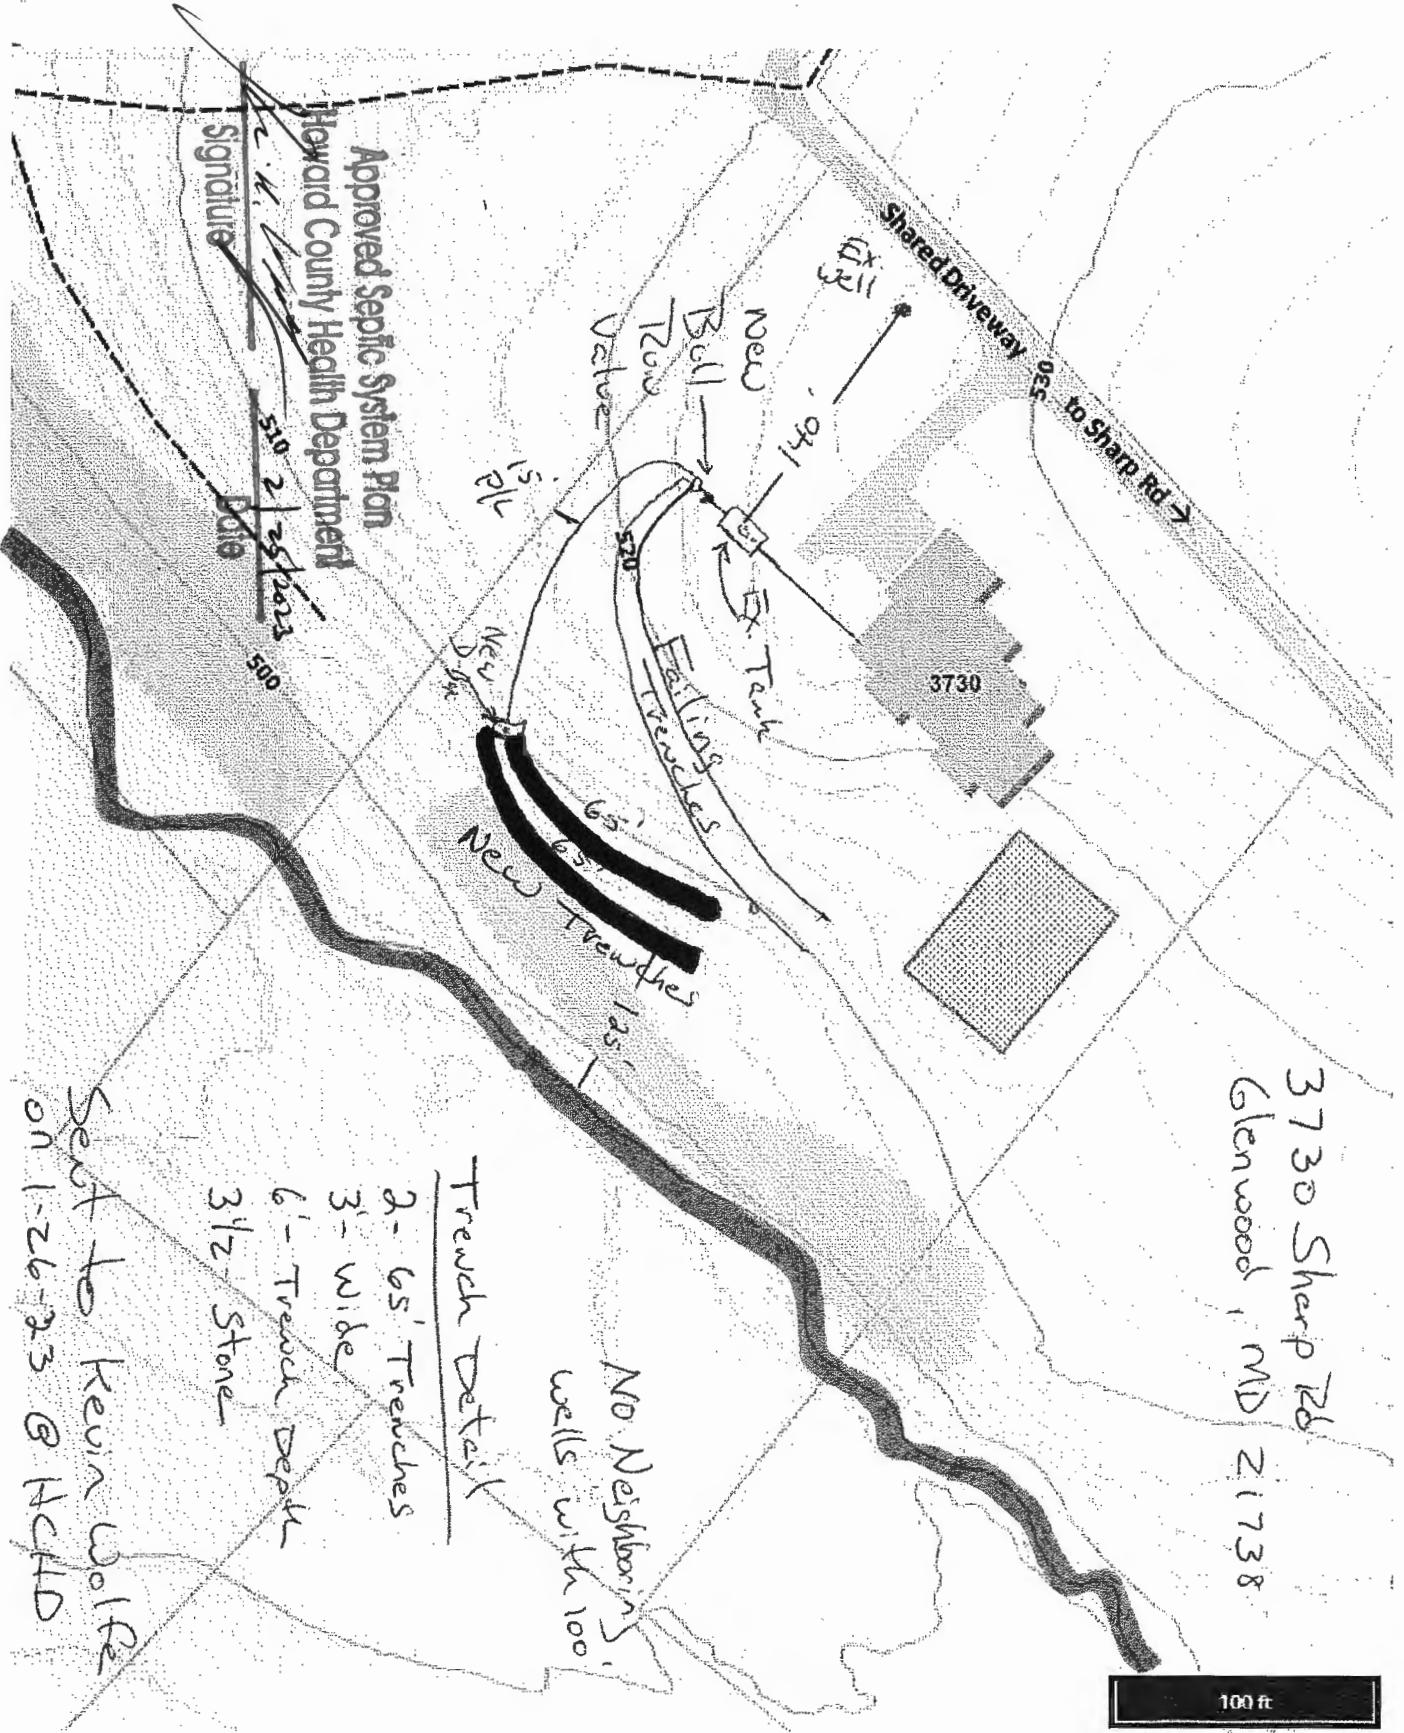 3730 Sharp Rd
Glenwood, MD 21738
Shared Driveway
530
to Sharp Rd →
Ex.
well
140'
New
Bull
Run
Valve
Ex. Tank
3730
Failing
Trenches
520
15'
P/L
New
D Box
65'
65'
New Trenches
125'
500
510
Approved Septic System Plan
Howard County Health Department
2/25/2023
Signature
Date
No. Neighboring
wells with 100'
Trench Detail
2- 65' Trenches
3'- wide
6'- Trench Depth
3 1/2 - Stone
Sent to Kevin Wolfe
on 1-26-23 @ HCHD
100 ft